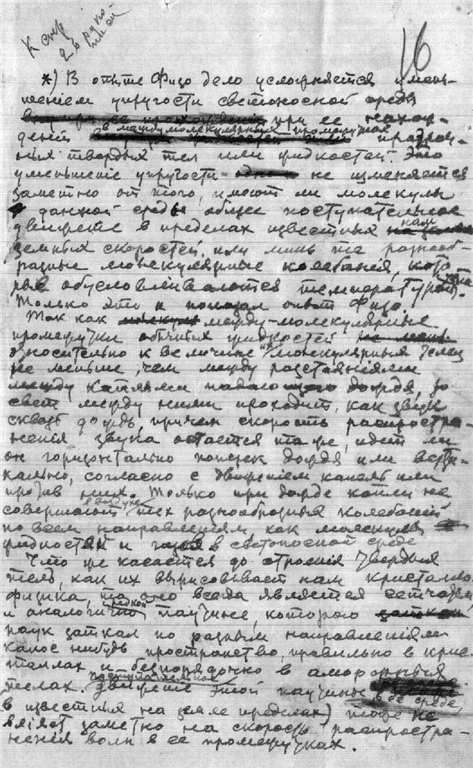 К стр
26 рукописной
16
*) В опыте Физо дело усложняется умень-
шением упругости светоносной среды
при ее нахож-
дении в междумолекулярных промежутках прозрач-
ных твердых тел или жидкостей. Это
уменьшение упругости не изменяется
заметно от того, имеют ли молекулы
данной среды общее поступательное
движение в пределах известных нам
земных скоростей, или лишь те разнооб-
разные молекулярные колебания, кото-
рые обусловливаются температурой.
Только это и показал опыт Физо.
Так как между-молекулярные
промежутки обычных жидкостей
относительно к величине молекулярных телец
не меньше, чем между расстояниями
между каплями падающего дождя, то
свет между ними проходит, как звук
сквозь дождь, причем скорость распростра-
нения звука остается та же, идет ли
он горизонтально поперек дождя или верти-
кально, согласно с движением капель или
против них. Только при дожде капли не
совершают в воздухе тех разнообразных колебаний
по всем направлениям, как молекулы
жидкостей и газов в светоносной среде.
Что же касается до строения твердых
тел, как их вырисовывает нам кристалло-
физика, то оно всегда является сетчатым
и аналогично редкой паутине, которою
паук заткал по разным направлениям
какое нибудь пространство, правильно в крис-
таллах и беспорядочно в аморфных
телах. Поступательное движение этой паутины в ее среде
(в известных на земле пределах) тоже не
влияет заметно на скорость распростра-
нения волн в ее промежутках.